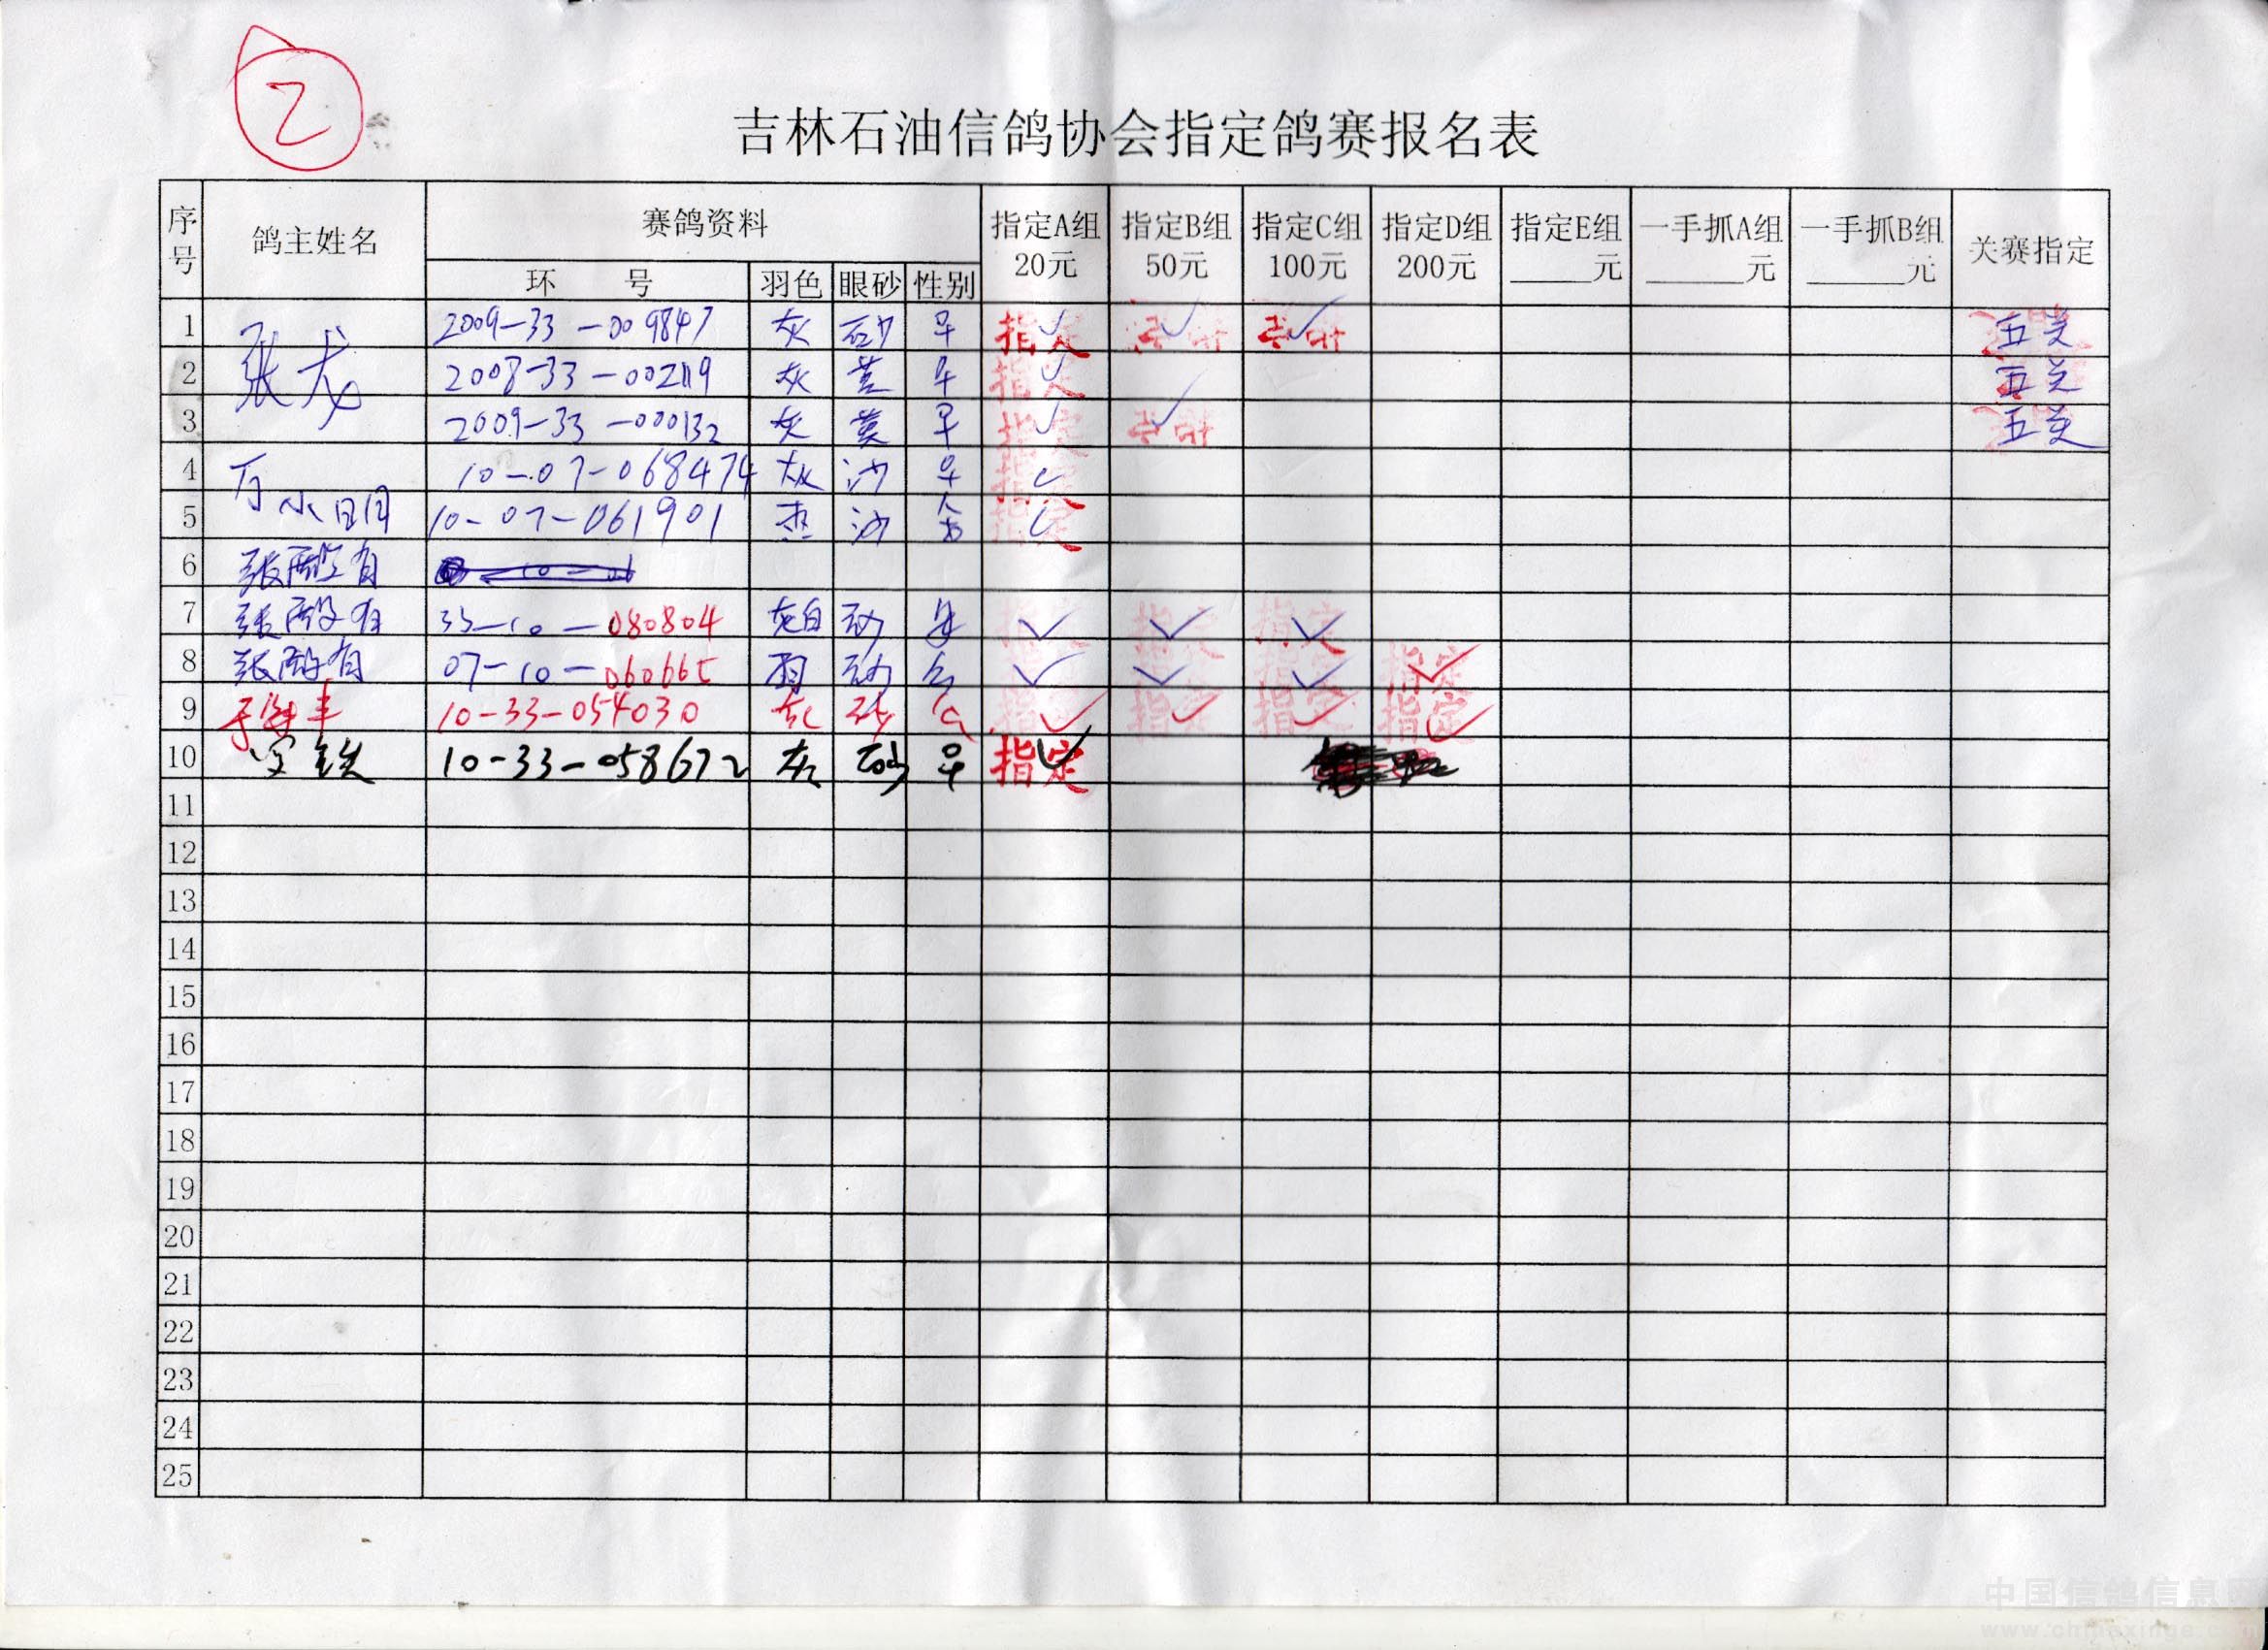 2
吉林石油信鸽协会指定鸽赛报名表
序号 鸽主姓名 赛鸽资料 指定A组 20元 指定B组 50元 指定C组 100元 指定D组 200元 指定E组 ______元 一手抓A组 ______元 一手抓B组 ______元 关赛指定
环 号 羽色 眼砂 性别
1 张龙 2009-33-009847 灰 砂 早 指定 五关
2 2008-33-002119 灰 黄 早 指定 五关
3 2009-33-000132 灰 黄 早 指定 五关
4 10-07-068474 灰 沙 指定
5 小明 10-07-061901 沙 指定
6 张 有
7 张 有 33-10-080804 灰白 砂 指定 指定 指定
8 张 有 07-10-060665 雨 砂 公 指定 指定 指定 指定
9 于海丰 10-33-054030 灰 砂 公 指定 指定 指定 指定
10 10-33-058672 灰 砂 早 指定
11
12
13
14
15
16
17
18
19
20
21
22
23
24
25
中国信鸽信息网
www.chinaxinge.com